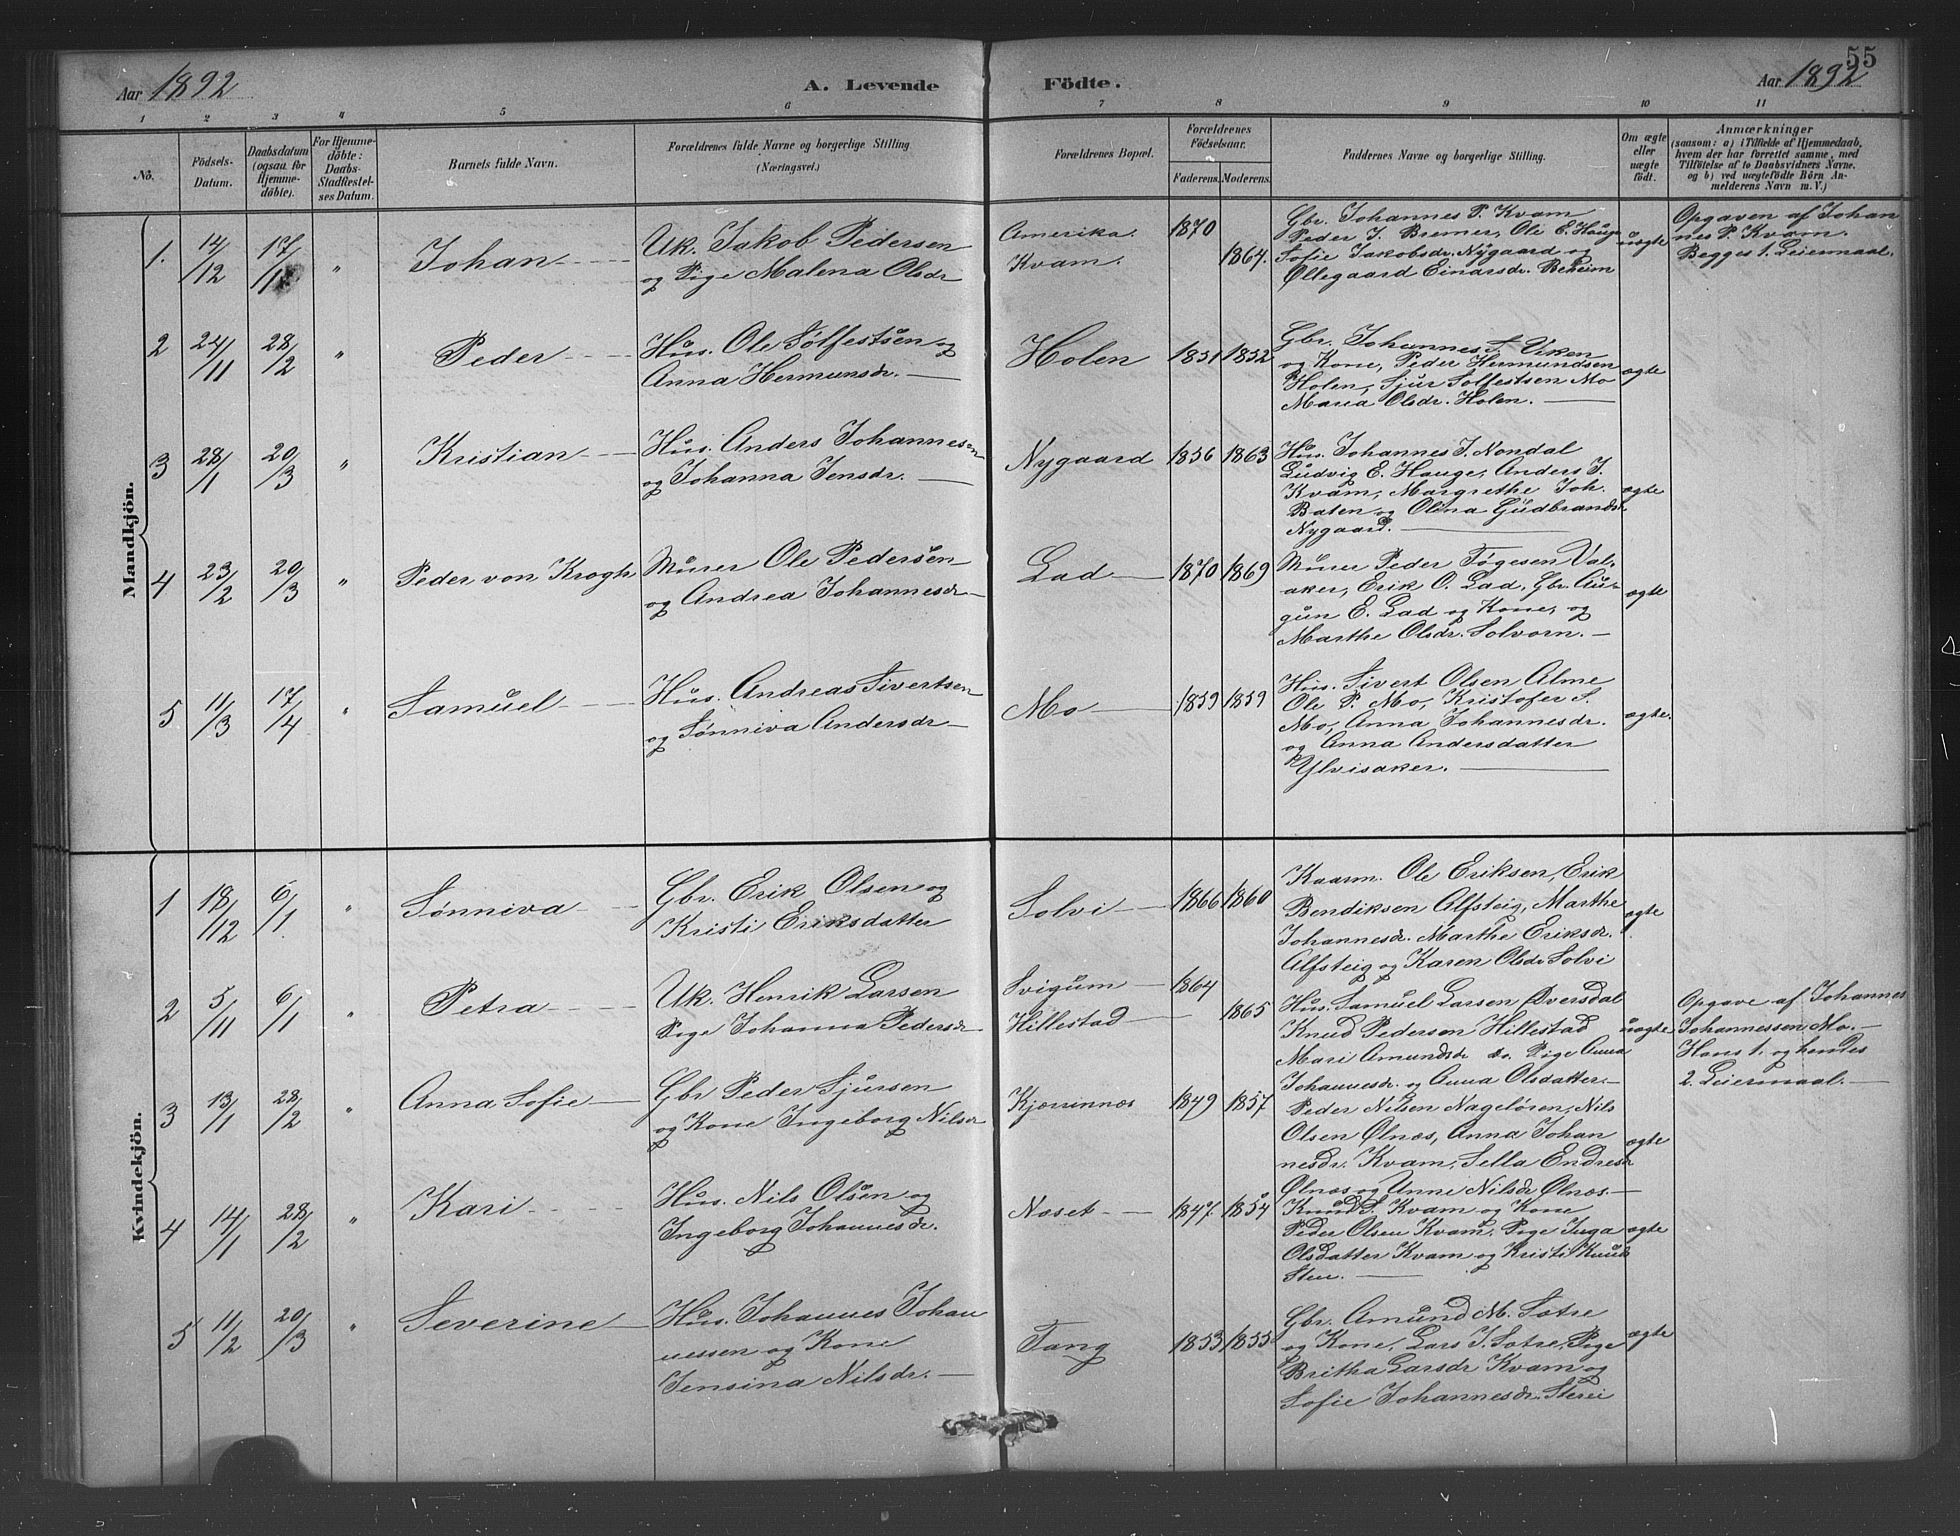 55
Aar 1892
A. Levende
Födte.
Aar 1892
1 2 3 4 5 6 7 8 9 10 11
No.
Födsels-
Datum.
Daabsdatum
(ogsaa for
Hjemme-
döbte).
For Hjemme-
döbte:
Daabs-
Stadfæstel-
ses Datum.
Barnets fulde Navn.
Forældrenes fulde Navne og borgerlige Stilling
(Næringsvei.)
Forældrenes Bopæl.
Forældrenes
Födselsaar.
Faderens. Moderens.
Faddernes Navne og borgerlige Stilling.
Om ægte
eller
uægte
födt.
Anmærkninger
(saasom: a) i Tilfælde af Hjemmedaab,
hvem der har forrettet samme, med
Tilföielse af to Daabsvidners Navne.
og b) ved uægtefödte Börn An-
melderens Navn m. V.)
Mandkjön.
1. 14/12 17/1 " Johan
Uk. Jakob Pedersen
og Pige Malena Olsdr
Amerika.
Kvam.
1870
1864.
Gbr. Johannes P. Kvam
Peder J. Bremer, Ole E. Hauge
Sofie Jakobsdr. Nygaard og
Øllegaard Einarsdr. Beheim
uægte
Opgaven af Johan
nes P. Kvam.
Begges 1. Leiermaal.
2 24/11 28/2 " Peder
Hus. Ole Sølfestsen og
Anna Hermunsdr.
Holen 1851 1852
Gbr. Johannes
og Kone, Peder Hermundsen
Holen, Sjur Solfestsen Mo
Maria Olsdr. Holen.
ægte
3 28/1 20/3 " Kristian
Hus. Anders Johannesen
og Johanna Jensdr.
Nygaard 1856 1863
Hus. Johannes J. Nondal
Ludvig E. Hauge, Anders J.
Kvam, Margrethe Joh.
Baten og Olina Gudbrandsd.
Nygaard.
ægte
4 23/2 20/3 " Peder von Krogh
Murer Ole Pedersen
og Andrea Johannesdr
Lad 1870 1869
Murer Peder Tøgesen Val-
aker, Erik O. Lad, Gbr. Au-
gun E. Lad og Kone, og
Marthe Olsdr. Solvorn.
ægte
5 11/3 17/4 " Samuel
Hus. Andreas Sivertsen
og Sønniva Andersdr
Mo 1859 1859
Hus. Sivert Olsen Alme
Ole P. Mo, Kristofer S.
Mo, Anna Johannesdr.
og Anna Andersdatter
Ylvisaker.
ægte.
Kvindekjön.
1 18/12 6/1 " Sønniva
Gbr. Erik Olsen og
Kristi Eriksdatter
Solvi 1866 1860
Kaarm. Ole Eriksen, Erik
Bendiksen Alfsteig, Marthe
Johannesdr. Marthe Eriksdr.
Alfsteig og Karen Olsdr Solvi
ægte
2 5/11 6/1 " Petra
Uk. Henrik Larsen
Pige Johanna Pedersdr
Svigum
Hillestad
1864
1865
Hus. Samuel Larsen Dversdal
Knud Pedersen Hillestad
Mari Amundsdr do. Pige Anna
Johannesdr. og Anna Olsdatter.
uægte
Opgave af Johannes
Johannessen Mo.
Hans 1. og hendes
2. Leiermaal.
3 13/1 28/2 " Anna Sofie
Gbr Peder Sjursen
og Kone Ingeborg Nilsdr
Kjærrinnæs 1849 1857
Peder Nilsen Nageløren, Nils
Olsen Ølnæs, Anna Johan
nesdr. Kvam, Sella Endresdr
Ølnæs og Anne Nilsdr Ølnæs.
ægte
4 14/1 28/2 " Kari
Hus. Nils Olsen og
Ingeborg Johannesdr.
Næset 1847. 1854
Knud S. Kvam og Kone
Peder Olsen Kvam, Pige Inga
Olsdatter Kvam og Kristi Knuds
Steu.
ægte
5 11/2 20/3 " Severine
Hus. Johannes Johan
nessen og Kone
Jensina Nilsdr.
Tang 1853 1855
Gbr. Amund M. Sotre
og Kone, Lars J. Sotre, Pige
Britha Larsdr Kvam og
Sofie Johannesdr.
ægte